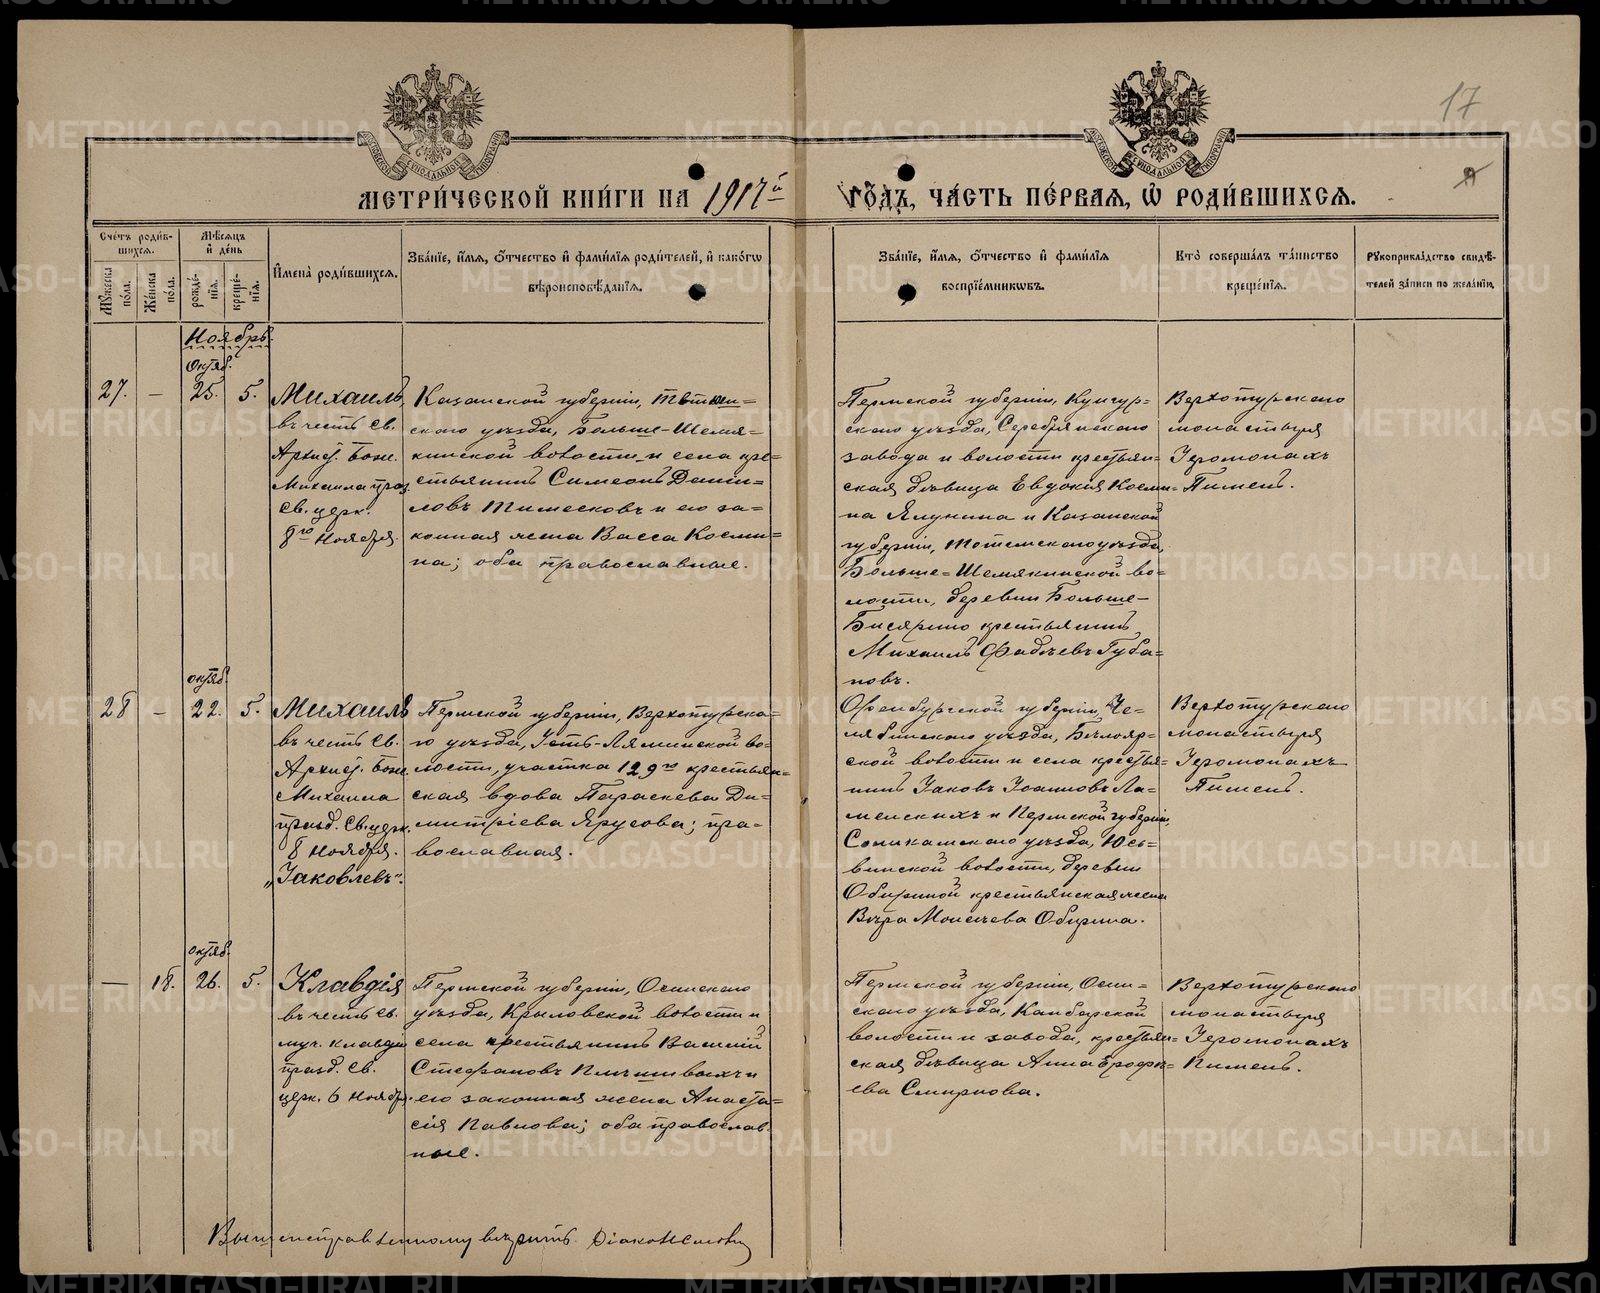 17
МЕТРИ́ЧЕСКОЙ КНИ́ГИ НА 1917й ГО́ДЪ, ЧА́СТЬ ПЕ́РВАЯ, Ѡ РОДИ́ВШИХСЯ.
Сче́тъ роди́в-
шихся.
Му́жеска
по́ла.
Же́нска
по́ла.
Мѣ́сяцъ
и де́нь
рожде́-
нія.
креще́-
нія.
Имена̀ роди́вшихся.
Зва́ніе, и́мя, о́тчество и фами́лія роди́телей, и како́гѡ
вѣроисповѣ́данія.
Зва́ніе, и́мя, о́тчество и фами́лія
воспріе́мникѡвъ.
Кто̀ соверша́лъ та́инство
креще́нія.
Рукоприкла́дство свидѣ́-
телей за́писи по жела́нію.
Ноябрь.
Октяб.
27. — 25. 5.
Михаилъ,
въ честь св.
Архист. Бож.
Михаила праз.
св. церк.
8го ноября.
Казанской губерніи, Тетюш=
скаго уѣзда, Больше-Шемя=
кинской волости и села кре=
стьянинъ Симеонъ Дани=
ловъ и его за=
конная жена Васса Косми=
на; оба православные.
Пермской губерніи, Кунгур=
скаго уѣзда, Серебрянскаго
завода и волости крестьян=
ская дѣвица Евдокія Косми=
на Ялунина и Казанской
губерніи, уѣзда,
Больше=Шемякинской во=
лости, деревни Больше-
крестьянинъ
Михаилъ Фадѣевъ Губа=
новъ.
Верхотурскаго
монастыря
Іеромонахъ
Пименъ.
октяб.
28 — 22. 5.
Михаилъ
въ честь св.
Архист. Бож.
Михаила
празд. св. церк.
8 ноября.
„Іаковлевъ".
Пермской губерніи, Верхотурска=
го уѣзда, Усть-Лялинской во=
лости, участка 129го крестьян=
ская вдова Параскева Ди=
митріева Ярусова; пра=
вославная.
Оренбургской губерніи, Че=
лябинскаго уѣзда, Бѣлояр=
ской волости и села крестья=
нинъ Іаковъ Іоанновъ Ла=
менскихъ и Пермской губерніи,
Соликамскаго уѣзда, Юсь=
винской волости, деревни
Обириной крестьянская жена
Вѣра Моисеева Обирина.
Верхотурскаго
монастыря
Іеромонахъ
Пименъ.
октяб.
— 18. 26. 5.
Клавдія
въ честь св.
муч. Клавдіи
празд. св.
церк. 6 ноября.
Пермской губерніи, Осинскаго
уѣзда, Крыловской волости и
села крестьянинъ Василій
Стефановъ и
его законная жена Анаста=
сія Павлова; оба православ=
ные.
Пермской губерніи, Осин=
скаго уѣзда, Камбарской
волости и завода, крестьян=
ская дѣвица Анна Ерофѣ=
ева Смирнова.
Верхотурскаго
монастыря
Іеромонахъ
Пименъ.
вѣрить.
METRIKI.GASO-URAL.RU